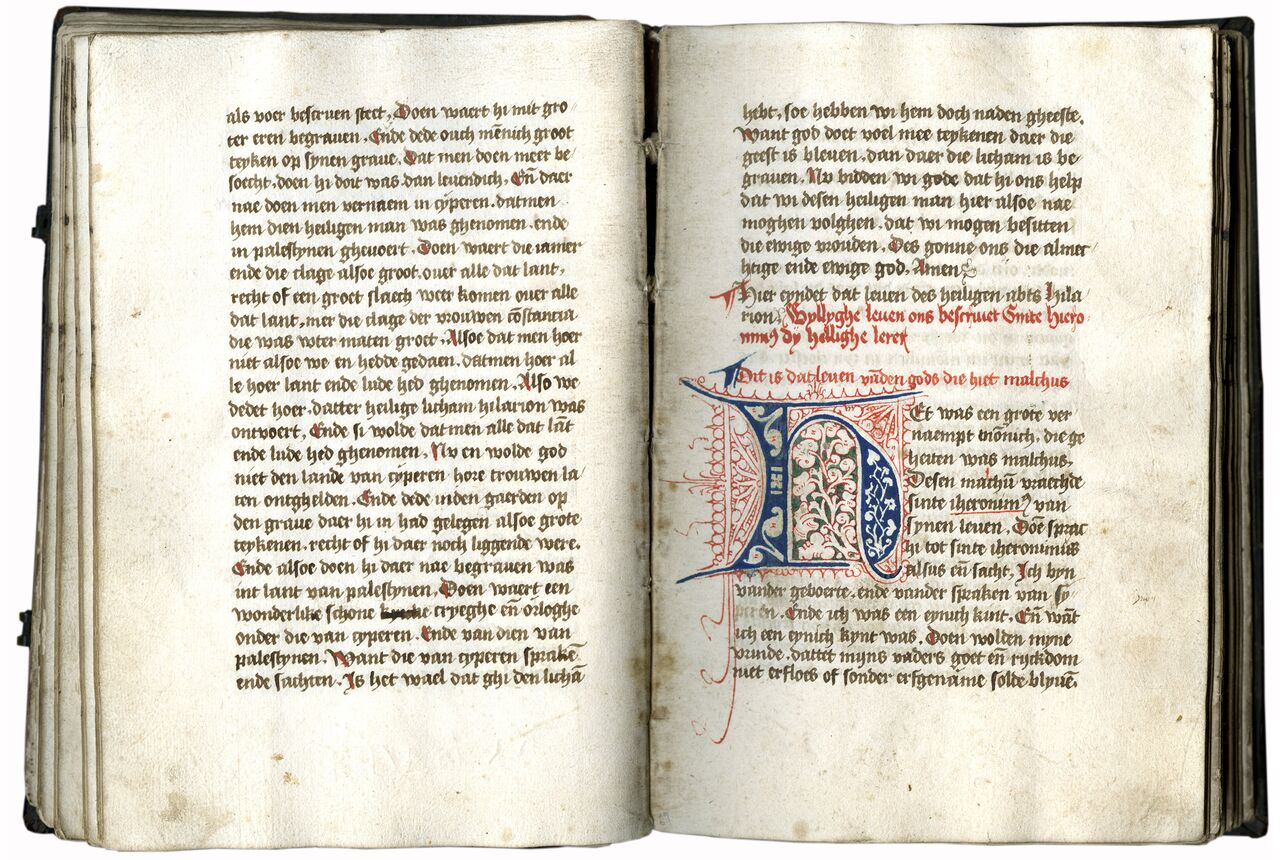 als voer bescruen steet, Doen waert hi mit gro
ter eren begrauen. Ende dede ouch mēnich groot
teyken op synen graue. Dat men doen meer be
soecht. doen hi doit was. dan leuendich. Eñ daer
nae doen men vernaem in cyperen. datmen
hem dien heiligen man was ghenomen. ende
in palestynen gheuoert. Doen waert die iamer
ende die clage alsoe groot. ouer alle dat lant,
recht of een groet slaech weer komen ouer alle
dat lant, mer die clage der vrouwen cōstancia
die was vter maten groet. Alsoe dat men hoer
niet alsoe we en hedde gedaen. datmen hoer al
le hoer lant ende lude hed ghenomen. Also we
dedet hoer. datter heilige licham hilarion was
ontvoert. Ende si wolde dat men alle dat lāt
ende lude hed ghenomen. Nv en wolde god
niet den lande van cyperen hore trouwen la
ten ontghelden. Ende dede inden gaerden op
den graue daer hi in had gelegen alsoe grote
teykenen. recht of hi daer noch liggende were.
Ende alsoe doen hi daer nae begrauen was
int lant van palestynen. Doen waert een
wonderlike schone cryeghe eñ orloghe
onder die van cyperen. Ende van dien van
palestynen. Want die van cyperen sprakē
ende sachten. Is het wael dat ghi den lichā
hebt, soe hebben wi hem doch naden gheeste.
Want god doet voel mee teykenen daer die
geest is bleuen. dan daer die licham is be
grauen. Nv bidden wi gode dat hi ons help
dat wi desen heiligen man hier alsoe nae
moghen volghen. dat wi mogen besitten
die ewige vrouden. Des gonne ons die almec
htige ende ewige god. Amen
Hier eyndet dat leuen des heiligen abts hila
rion. Wyllyghe leuen ons bescriuet Sinte hiero
nimꝰ dy hellighe lerer
Dit is dat leuen vāden gods die hiet malchus
Het was een grote ver
naempt mōnich, die ge
heiten was malchus.
Desen machū vraechde
sinte iheronimꝰ van
synen leuen. Doē sprac
hi tot sinte iheronimus
alsus eñ sacht, Ich byn
vander geboerte. ende vander spraken van sy
peren. Ende ich was een eynich kint. Eñ wāt
ich een eynich kynt was. Doen wolden myne
vrunde. dattet mijns vaders goet eñ ryckdom
niet erfloes of sonder erfgename solde blyuē.